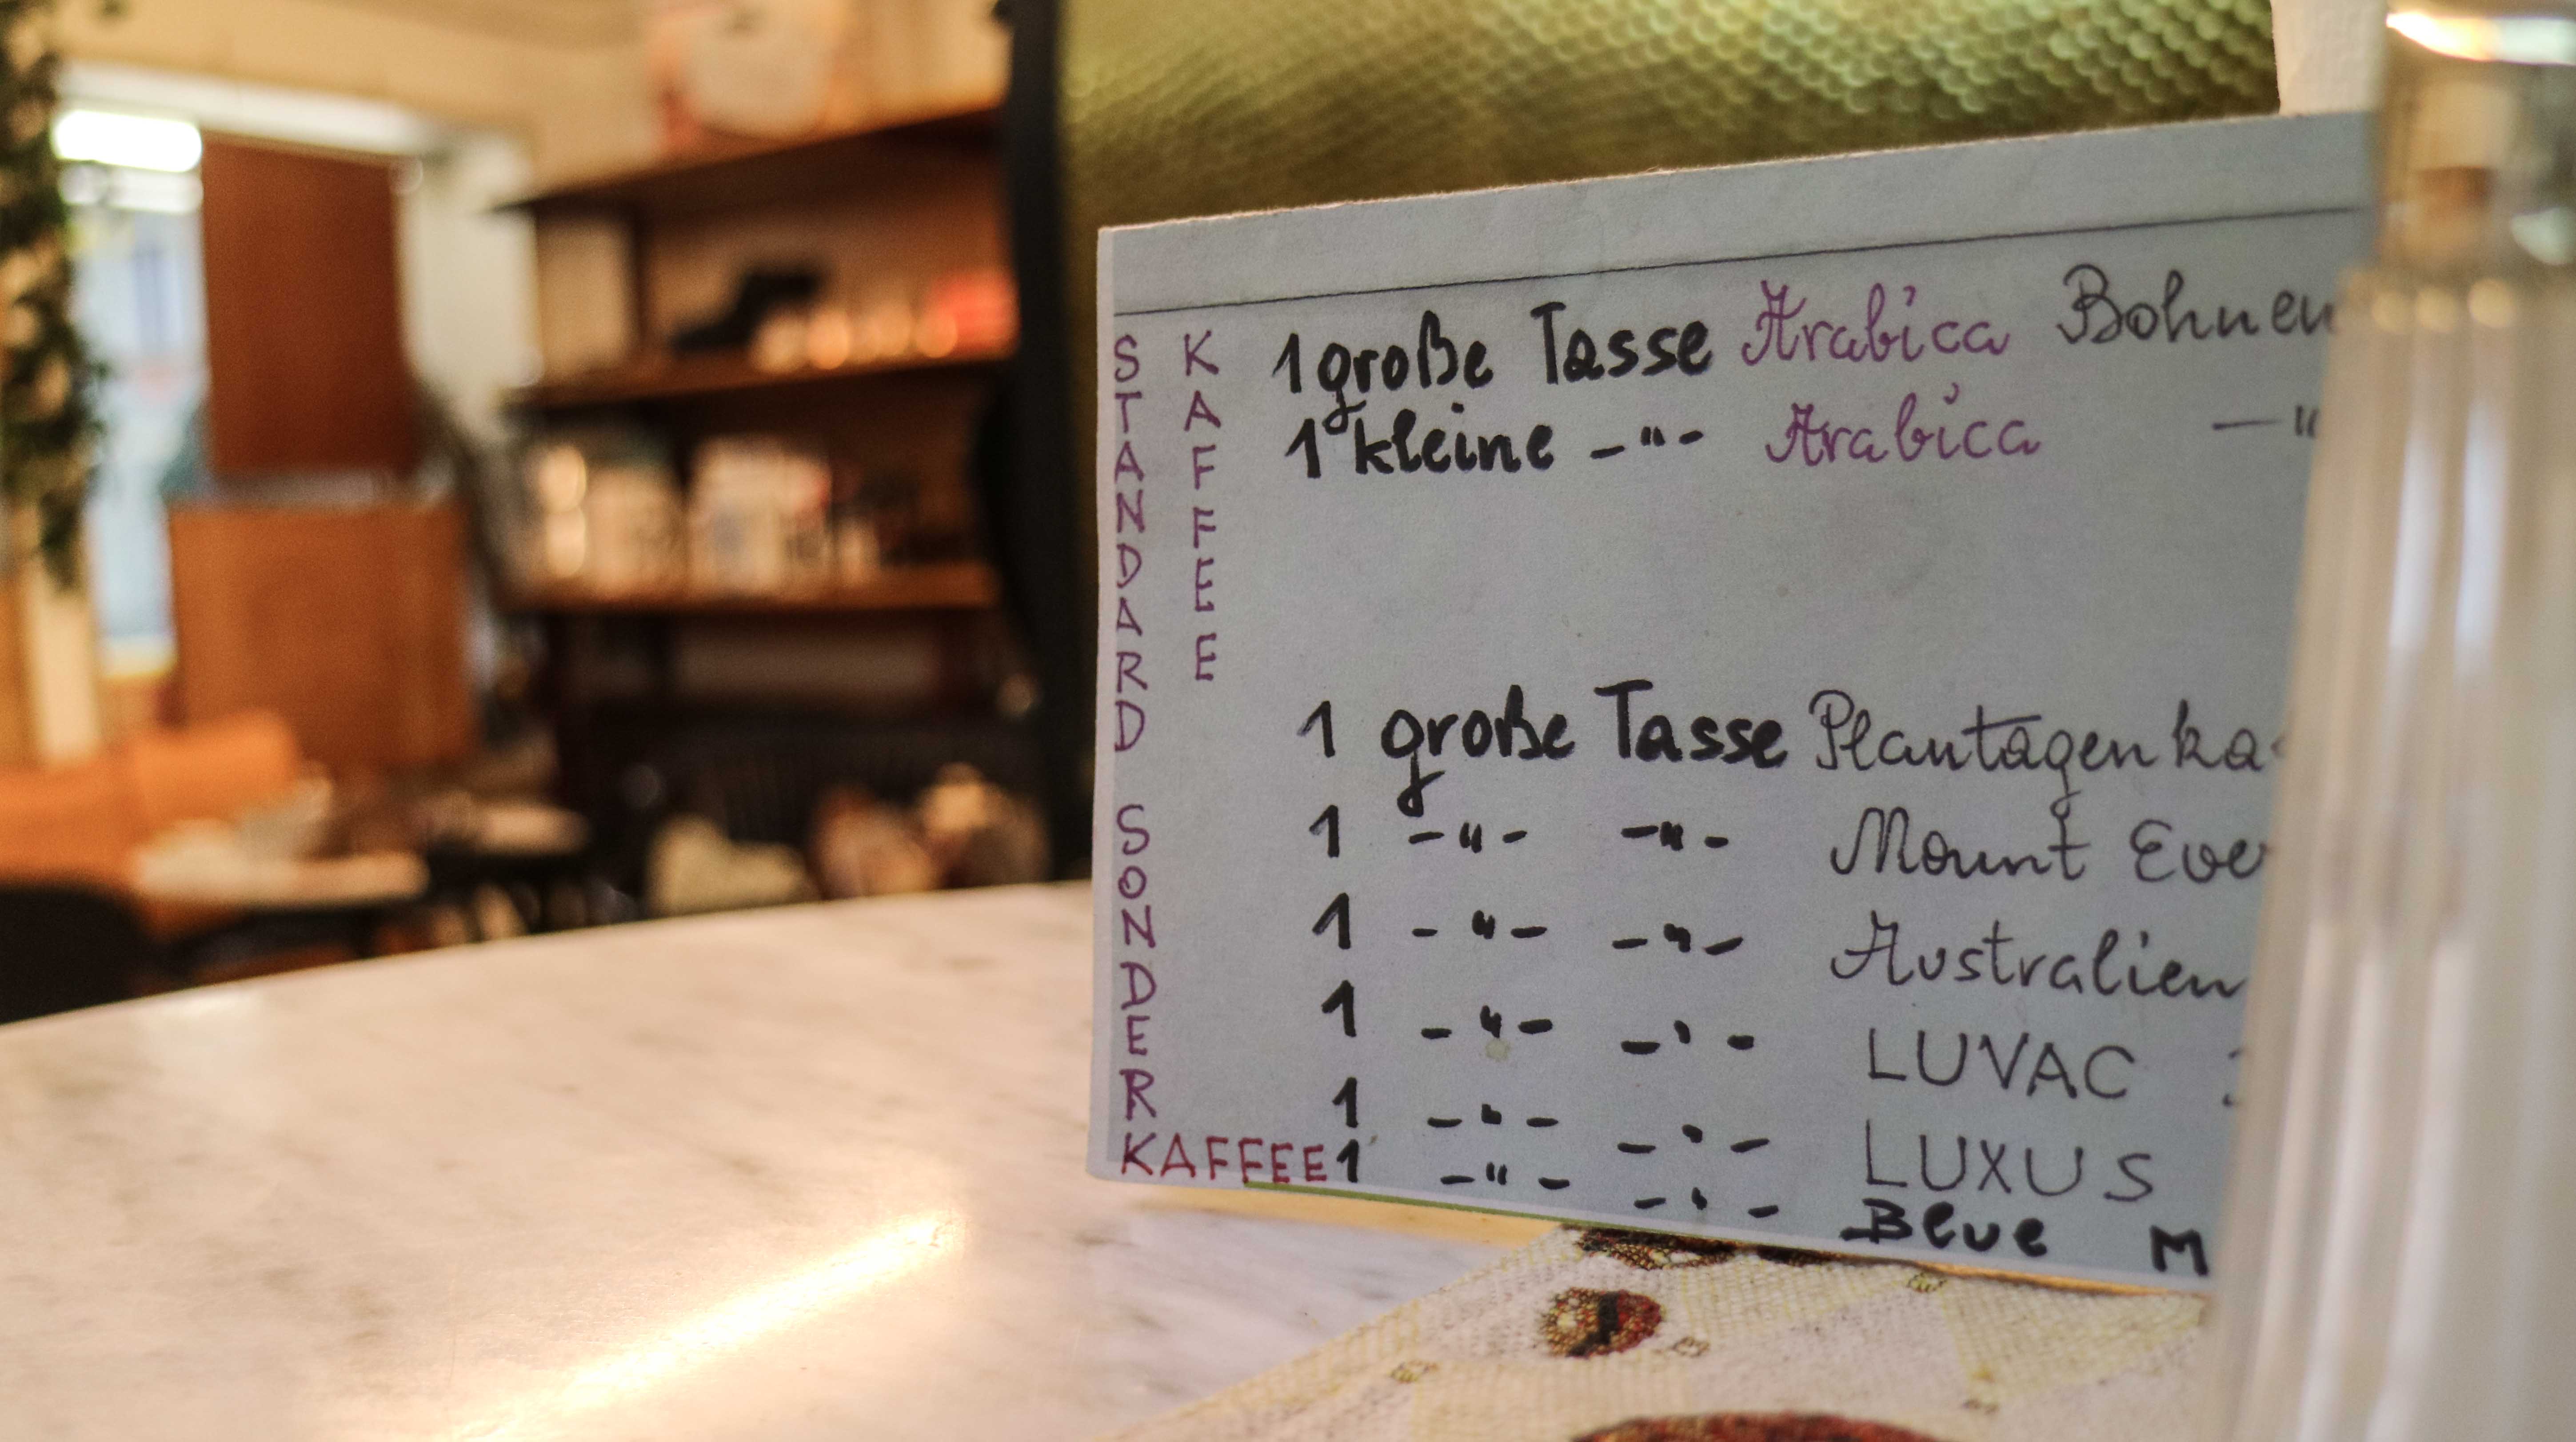 STANDARD KAFFEE
1 große Tasse Arabica Bohnen
1 kleine -"- Arabica -"
STANDARD SONDER KAFFEE
1 große Tasse Plantagenka
1 -"- -"- Mount Eve
1 -"- -"- Australien
1 -"- -"- LUVAC
1 -"- -"- LUXUS
1 -"- -"- Blue M